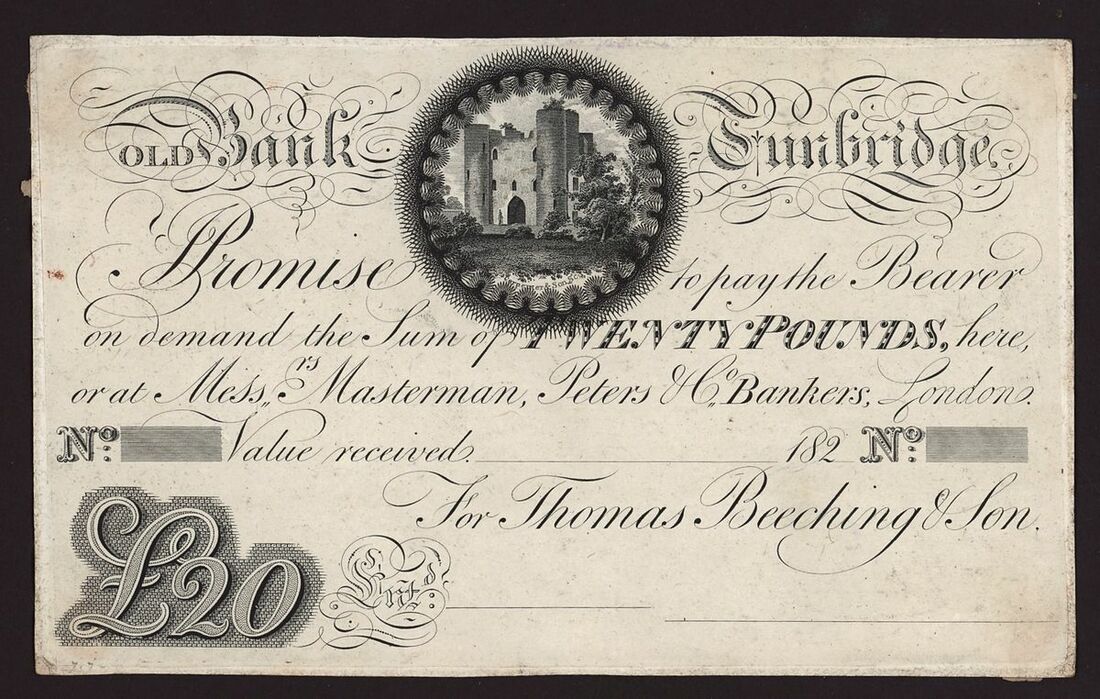 OLD Bank Tunbridge.
I Promise to pay the Bearer
on demand the Sum of TWENTY POUNDS, here,
or at Mess,,rs Masterman, Peters & Co,, Bankers, London.
No: Value received. 182 No:
For Thomas Beeching & Son.
£20 Entd.